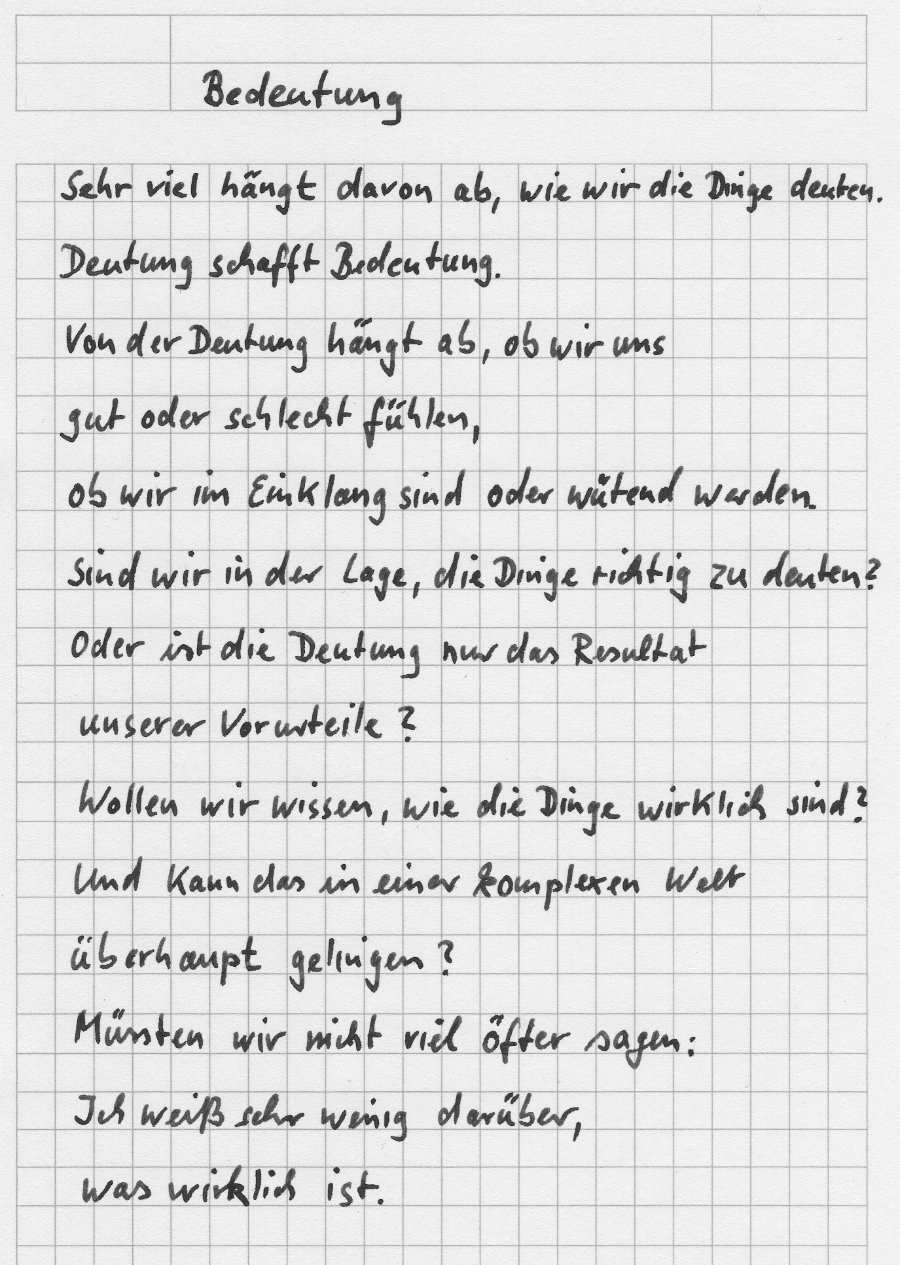 Bedeutung
Sehr viel hängt davon ab, wie wir die Dinge deuten.
Deutung schafft Bedeutung.
Von der Deutung hängt ab, ob wir uns
gut oder schlecht fühlen,
ob wir im Einklang sind oder wütend werden.
Sind wir in der Lage, die Dinge richtig zu deuten?
Oder ist die Deutung nur das Resultat
unserer Vorurteile?
Wollen wir wissen, wie die Dinge wirklich sind?
Und kann das in einer komplexen Welt
überhaupt gelingen?
Müssten wir nicht viel öfter sagen:
Ich weiß sehr wenig darüber,
was wirklich ist.